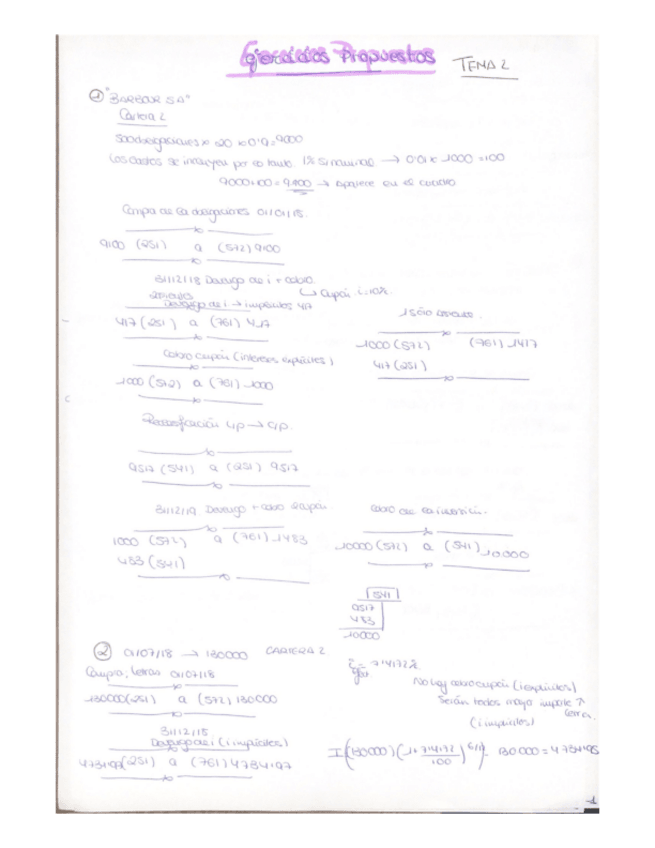 Ejercicios Propuestos TEMA 2
① "BARBOUR SA"
Cartera 2
500 obligaciones x 20 x 0'9 = 9000
Los Gastos se incluyen por lo tanto. 1% s/nominal → 0'01 x 1000 = 100
9000+100 = 9100 → aparece en el cuadro
Compra de las obligaciones 01/01/18.
9100 (251) a (572) 9100
31/12/18 Devengo de i + cobro.
↳ Cupón i.10%.
Devengo de i → implícitos 417
417 (251) a (761) 417
1 sólo asiento.
1000 (572) (761) 1417
417 (251)
Cobro cupón (intereses explícitos)
1000 (572) a (761) 1000
Reclasificación L/p → C/p.
9517 (541) a (251) 9517
31/12/19 Devengo + cobro cupón.
1000 (572) a (761) 1483
483 (541)
Cobro de la inversión.
10000 (572) a (541) 10000
541
9517
483
10000
② 01/07/18 → 130000 CARTERA 2
Compra, Letras 01/07/18
130000 (251) a (572) 130000
No hay cobro cupón (i explícitos)
Serán todos mayor importe
letras.
(i implícitos)
31/12/18
Devengo de i (i implícitos)
4734197 (251) a (761) 4734197